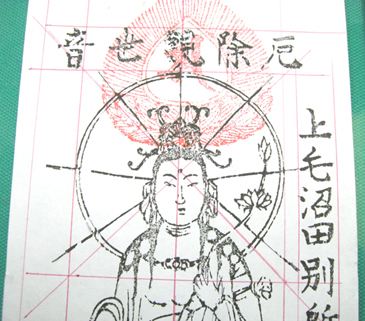 厄除観世音
上毛沼田別所